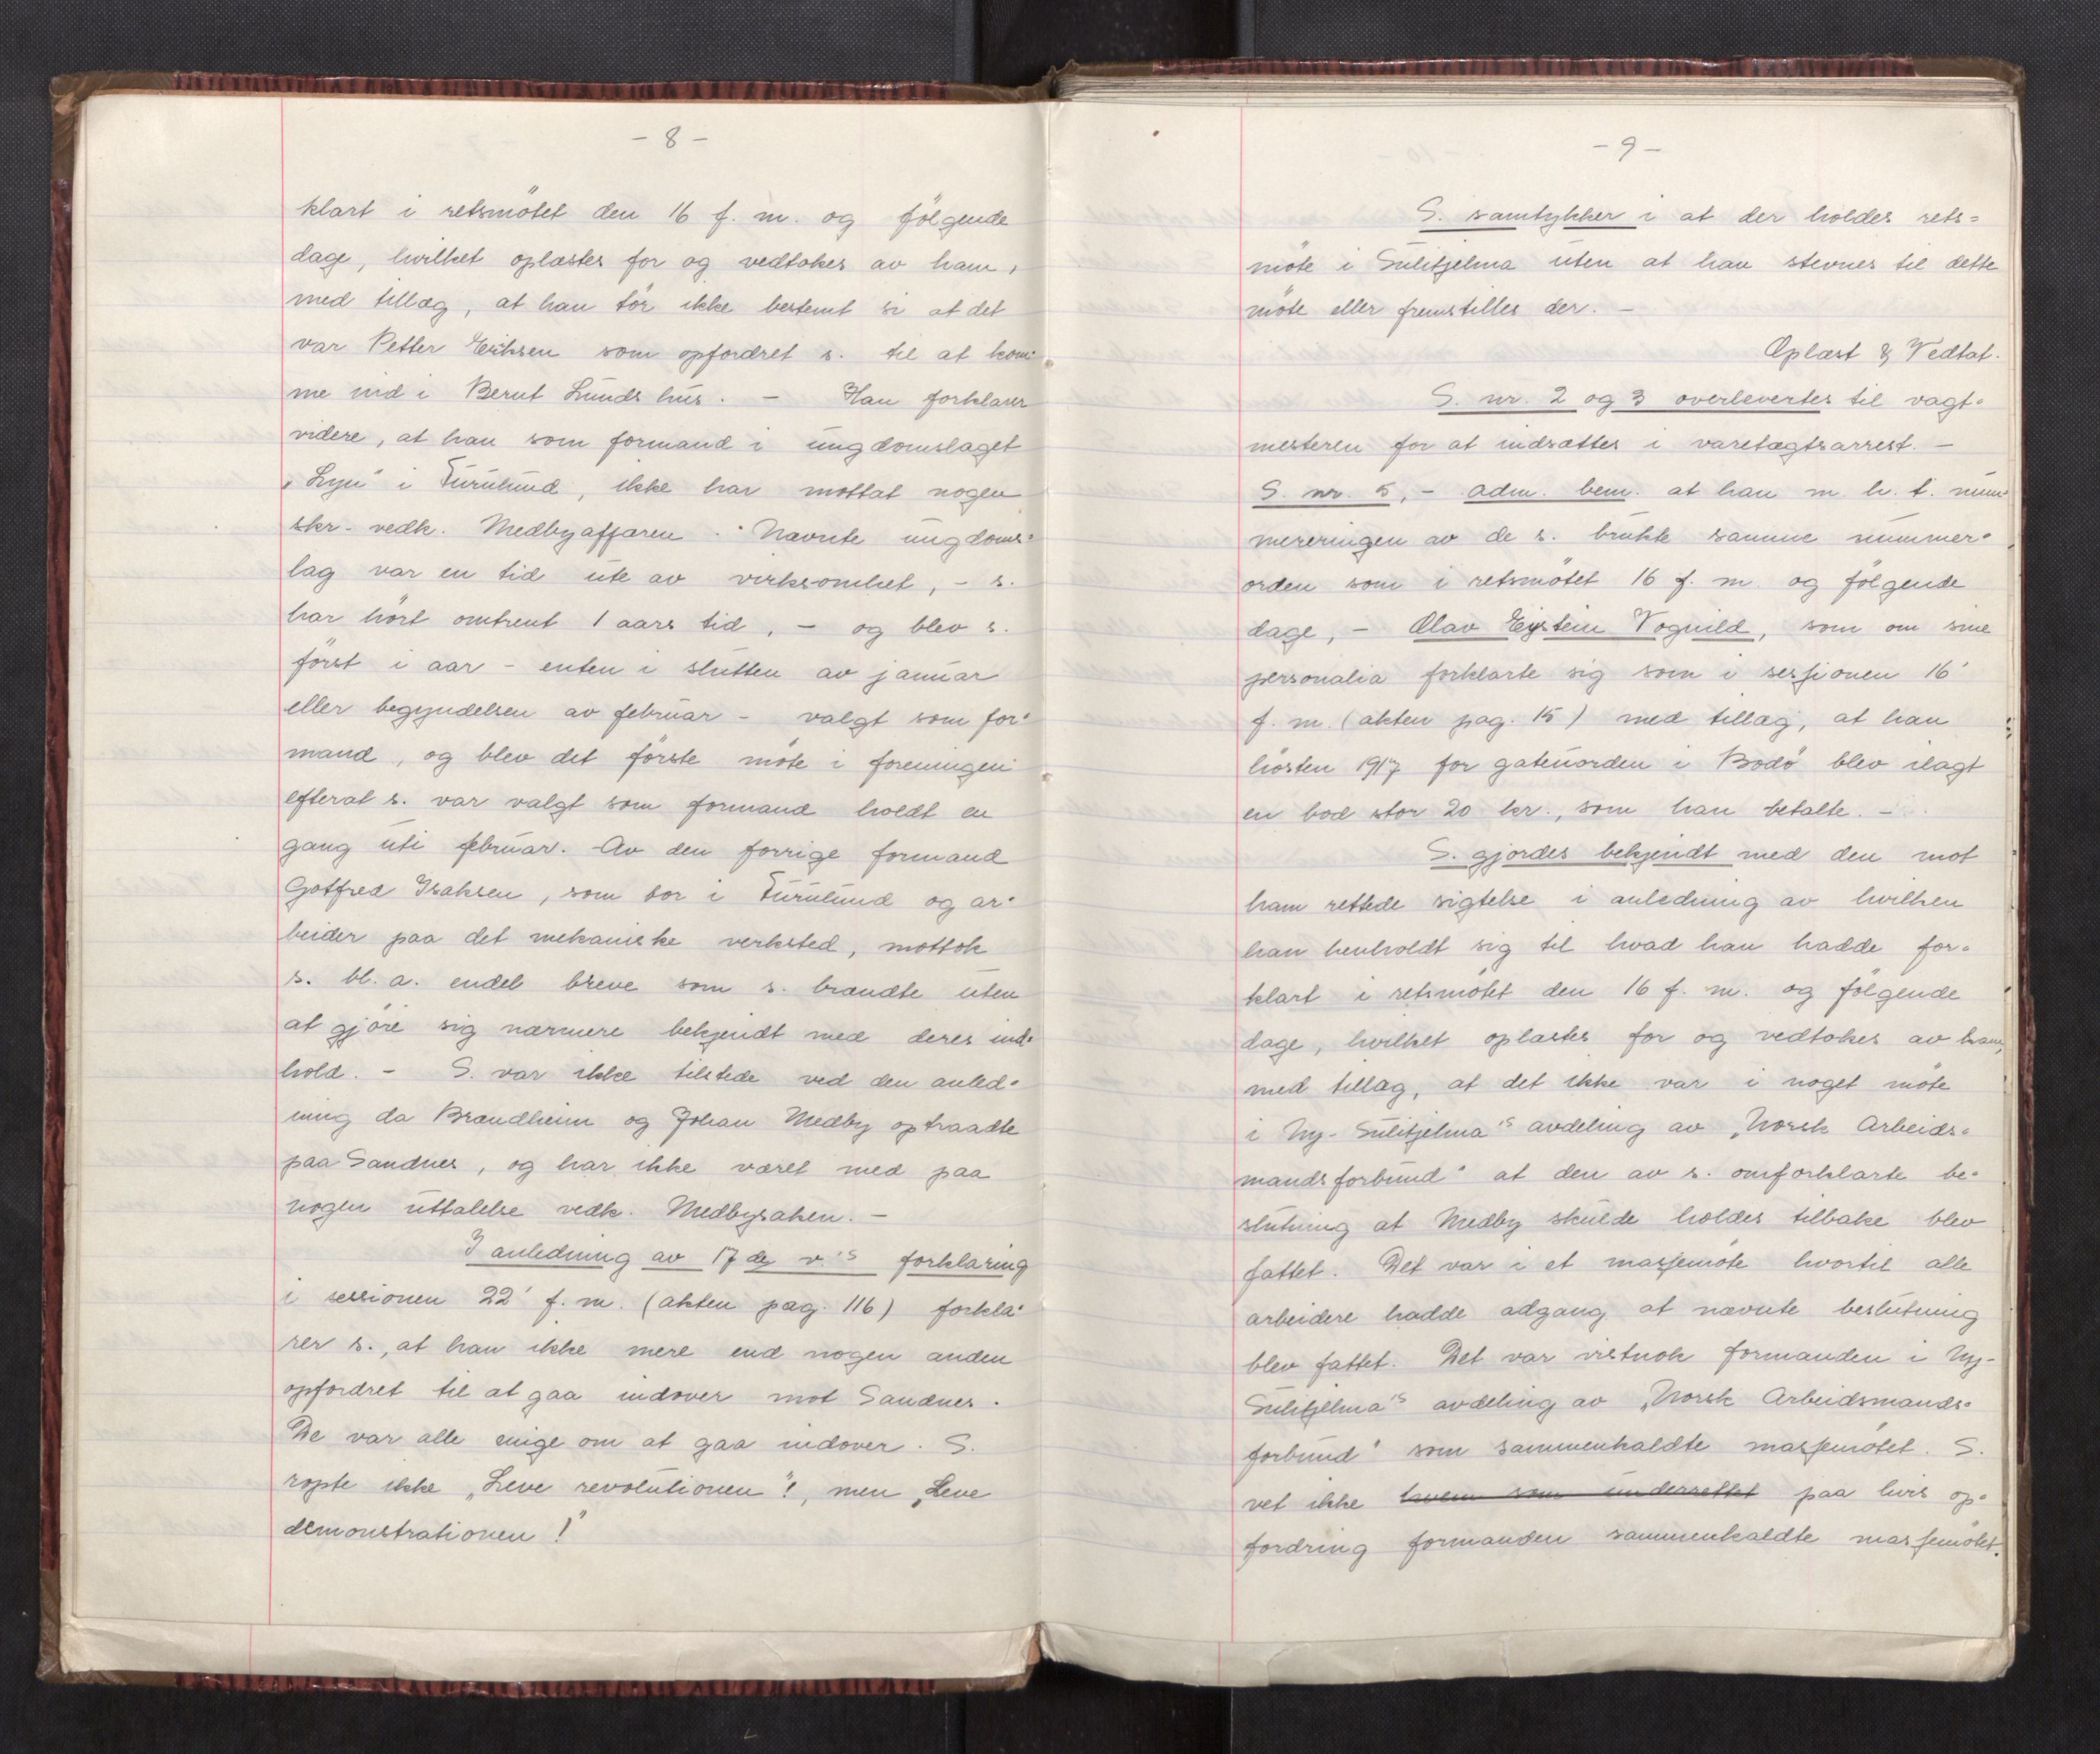 - 8 -
klart i retsmötet den 16 f. m. og fölgende
dage, hvilket oplæstes for og vedtokes av ham,
med tillæg, at han tör ikke bestemt si at det
var Petter Eriksen som opfordret s. til at kom-
me ind i Bernt Lunds hus. - Han forklarer
videre, at han som formand i ungdomslaget
„Lyn" i Furulund, ikke har mottat nogen
skr. vedk. Medbyaffæren. Nævnte ungdoms-
lag var en tid ute av virksomhet, - s.
har hört omtrent 1 aars tid, - og blev s.
först i aar - enten i slutten av januar
eller begyndelsen av februar - valgt som for-
mand, og blev det förste möte i foreningen
efterat s. var valgt som formand holdt en
gang uti februar. Av den forrige formand
Gotfred Isaksen, som bor i Furulund og ar-
beider paa det mekaniske verksted, mottok
s. bl. a. endel breve som s. brændte uten
at gjöre sig nærmere bekjendt med deres ind-
hold. - S. var ikke tilstede ved den anled-
ning da Brændheim og Johan Medby optraadte
paa Sandnes, og har ikke været med paa
nogen uttalelse vedk. Medbysaken. -
I anledning av 17 de v.'s forklaring
i sessionen 22' f. m. (akten pag. 116) forkla-
rer s., at han ikke mere end nogen anden
opfordret til at gaa indover mot Sandnes.
De var alle enige om at gaa indover. S.
ropte ikke „Leve revolutionen"!, men „Leve
demonstrationen!"
- 9 -
S. samtykker i at der holdes rets-
möte i Sulitjelma uten at han stevnes til dette
möte eller fremstilles der. -
Oplæst & Vedtat.
S. nr. 2 og 3 overlevertes til vagt-
mesteren for at indsættes i varetægtsarrest. -
S. nr. 5, - adm. bem. at han m. h. t. num-
mereringen av de s. brukte samme nummer-
orden som i retsmötet 16 f. m. og fölgende
dage, - Olav Eystein Vognild, som om sine
personalia forklarte sig som i sessionen 16'
f. m. (akten pag. 15) med tillæg, at han
hösten 1917 for gateuorden i Bodö blev ilagt
en bod stor 20 kr., som han betalte. -
S. gjordes bekjendt med den mot
ham rettede sigtelse i anledning av hvilken
han henholdt sig til hvad han hadde for-
klart i retsmötet den 16 f. m. og fölgende
dage, hvilket oplæstes for og vedtokes av ham,
med tillæg, at det ikke var i noget möte
i Ny-Sulitjelma's avdeling av „Norsk Arbeids-
mandsforbund" at den av s. omforklarte be-
slutning at Medby skulde holdes tilbake blev
fattet. Det var i et massemöte hvortil alle
arbeidere hadde adgang at nævnte beslutning
blev fattet. Det var vistnok formanden i Ny-
Sulitjelma's avdeling av „Norsk Arbeidsmands-
forbund" som sammenkaldte massemötet. S.
vet ikke hvem som underrettet paa hvis op-
fordring formanden sammenkaldte massemötet.